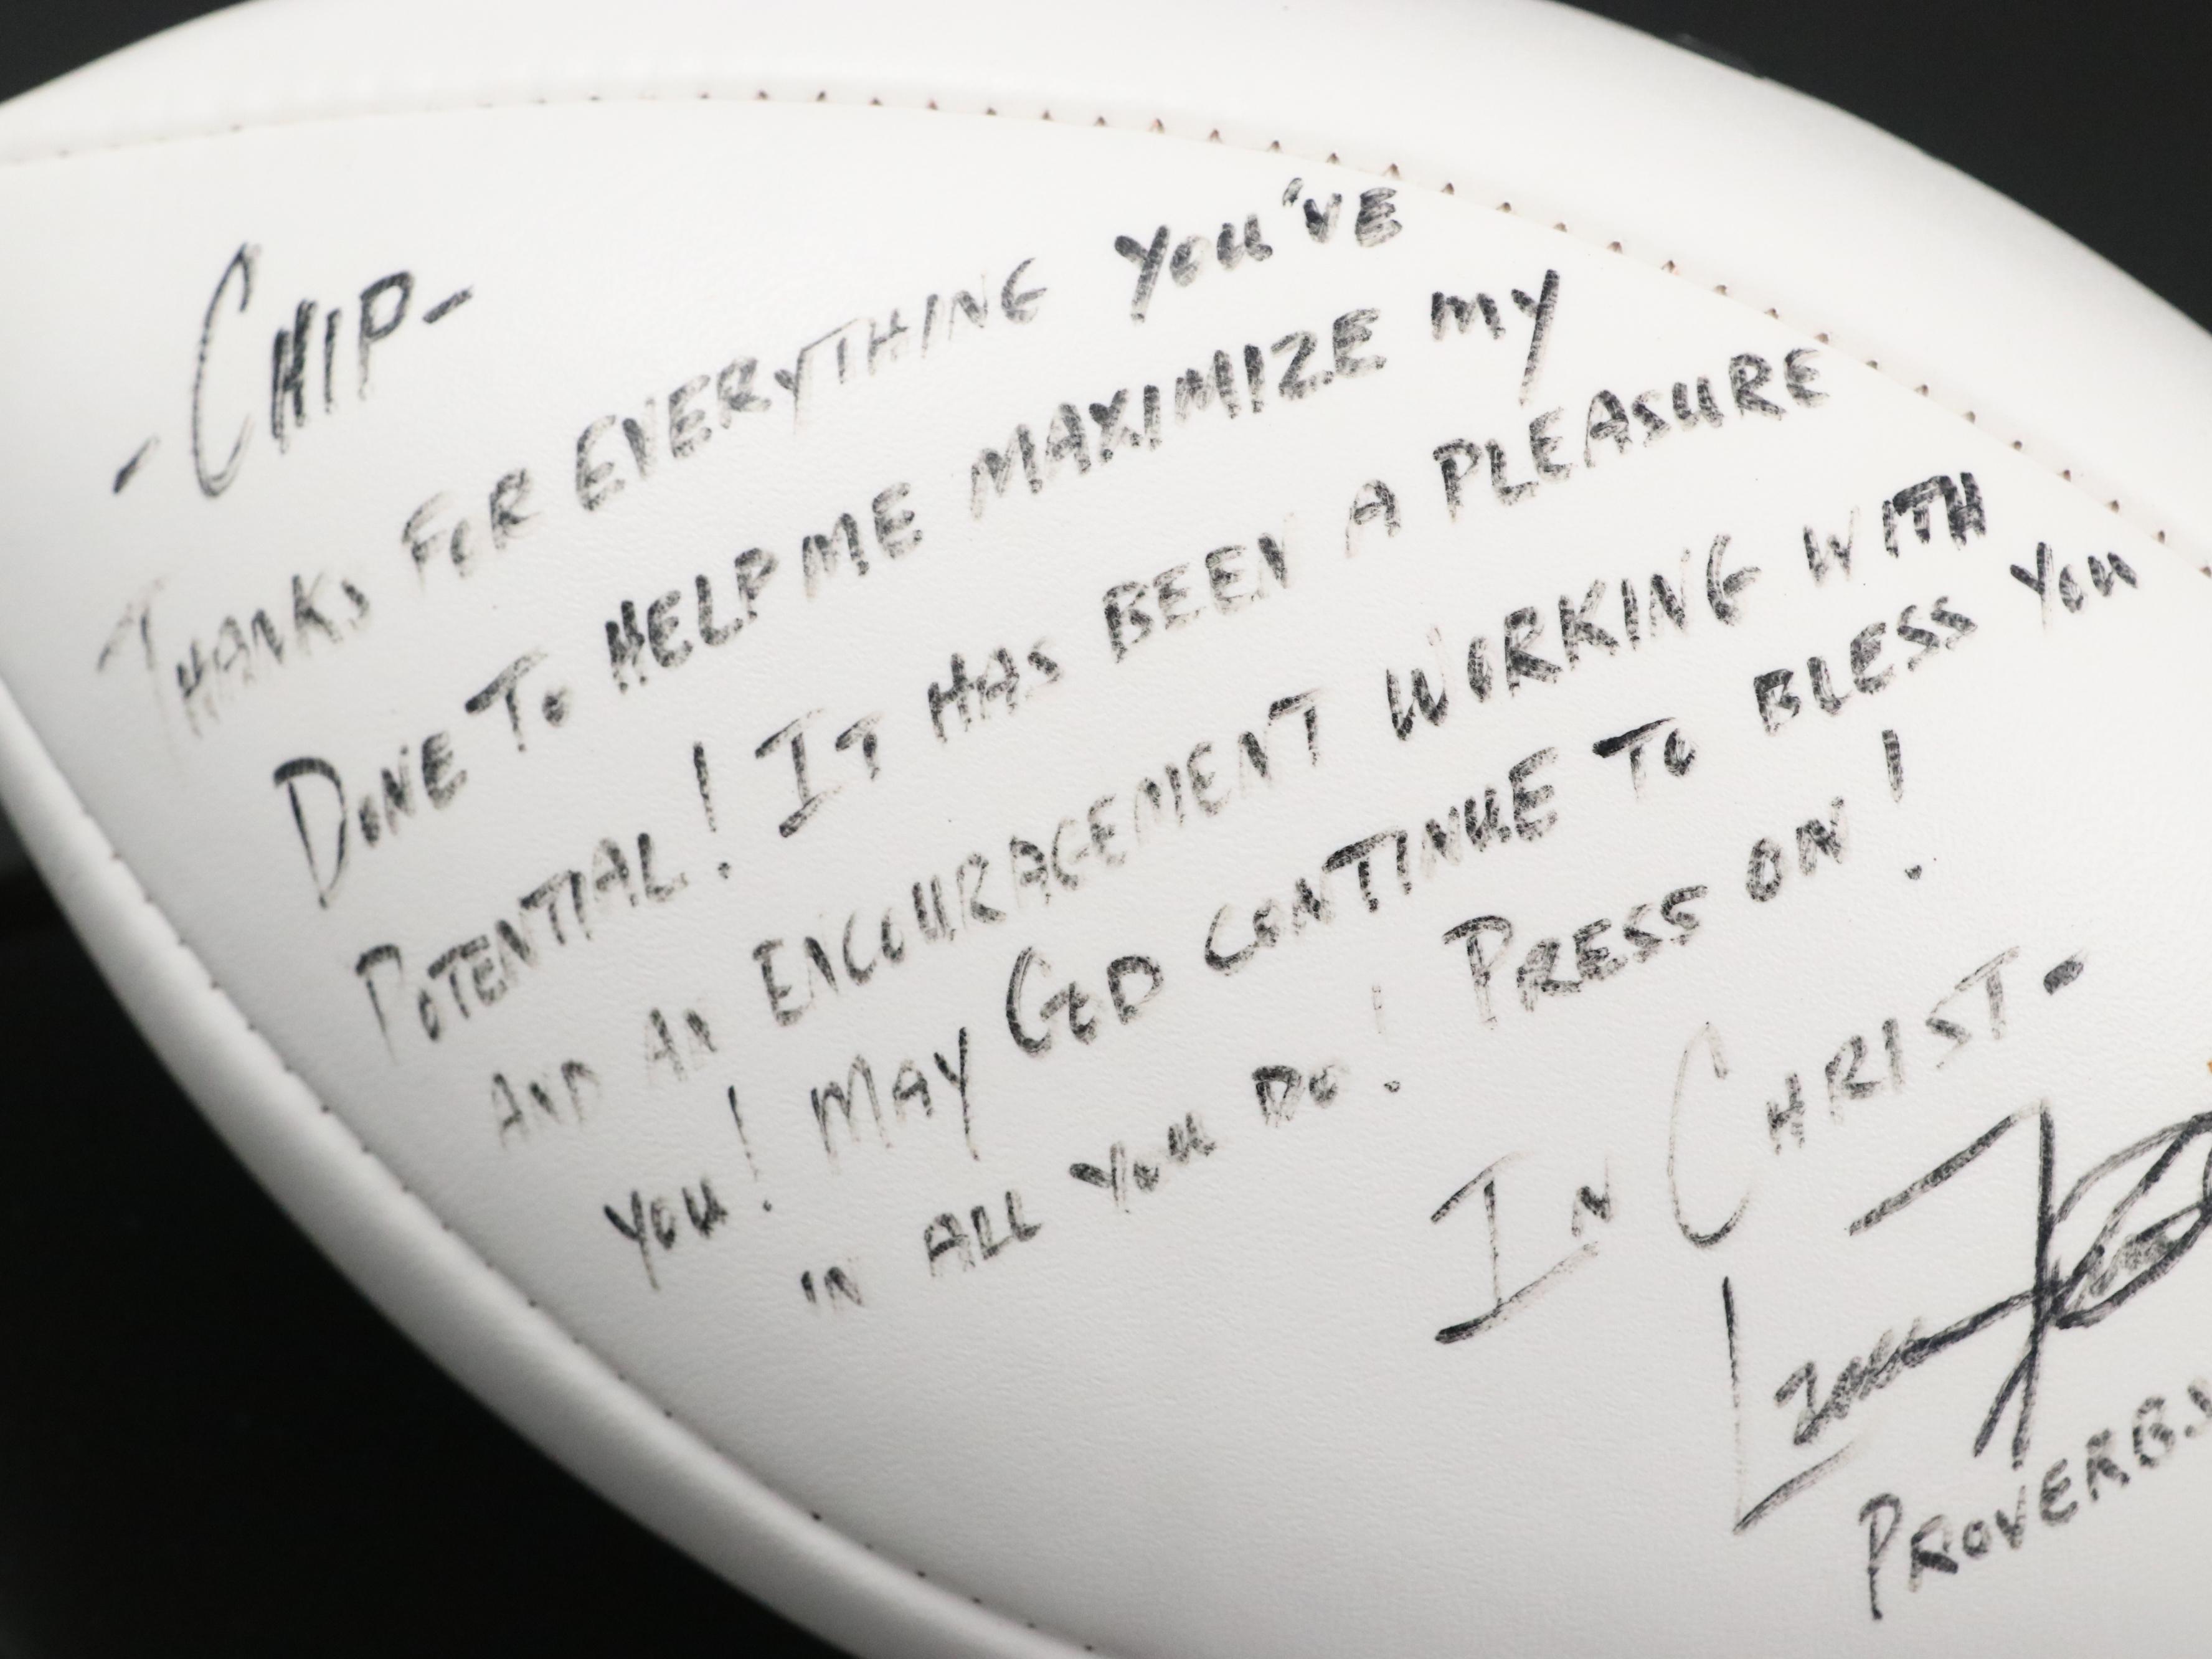 -CHIP-
THANKS FOR EVERYTHING YOU'VE
DONE TO HELP ME MAXIMIZE MY
POTENTIAL! IT HAS BEEN A PLEASURE
AND AN ENCOURAGEMENT WORKING WITH
YOU! MAY GOD CONTINUE TO BLESS YOU
IN ALL YOU DO! PRESS ON!
IN CHRIST-
PROVERBS